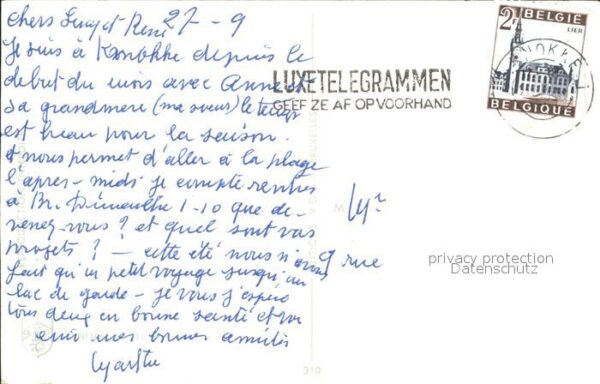 27-9
chers Suzy et René
Je suis à Knokke depuis le
début du mois avec Anne et
sa grandmère (ma soeur) le temps
est beau pour la saison.
et nous permet d'aller à la plage
l'après-midi je compte rentrer
à Br. Dimanche 1-10 que de-
venez-vous? et quel sont vos
projets? — cette été nous n'avons
fait qu'un petit voyage jusqu'au
lac de garde - je vous espère
tous deux en bonne santé et vous
envoie mes bonnes amitiés
Marthe
Mr
9 rue
LUXETELEGRAMMEN
GEEF ZE AF OP VOORHAND
KNOKKE
2F BELGIE
LIER
BELGIQUE
privacy protection
Datenschutz
310